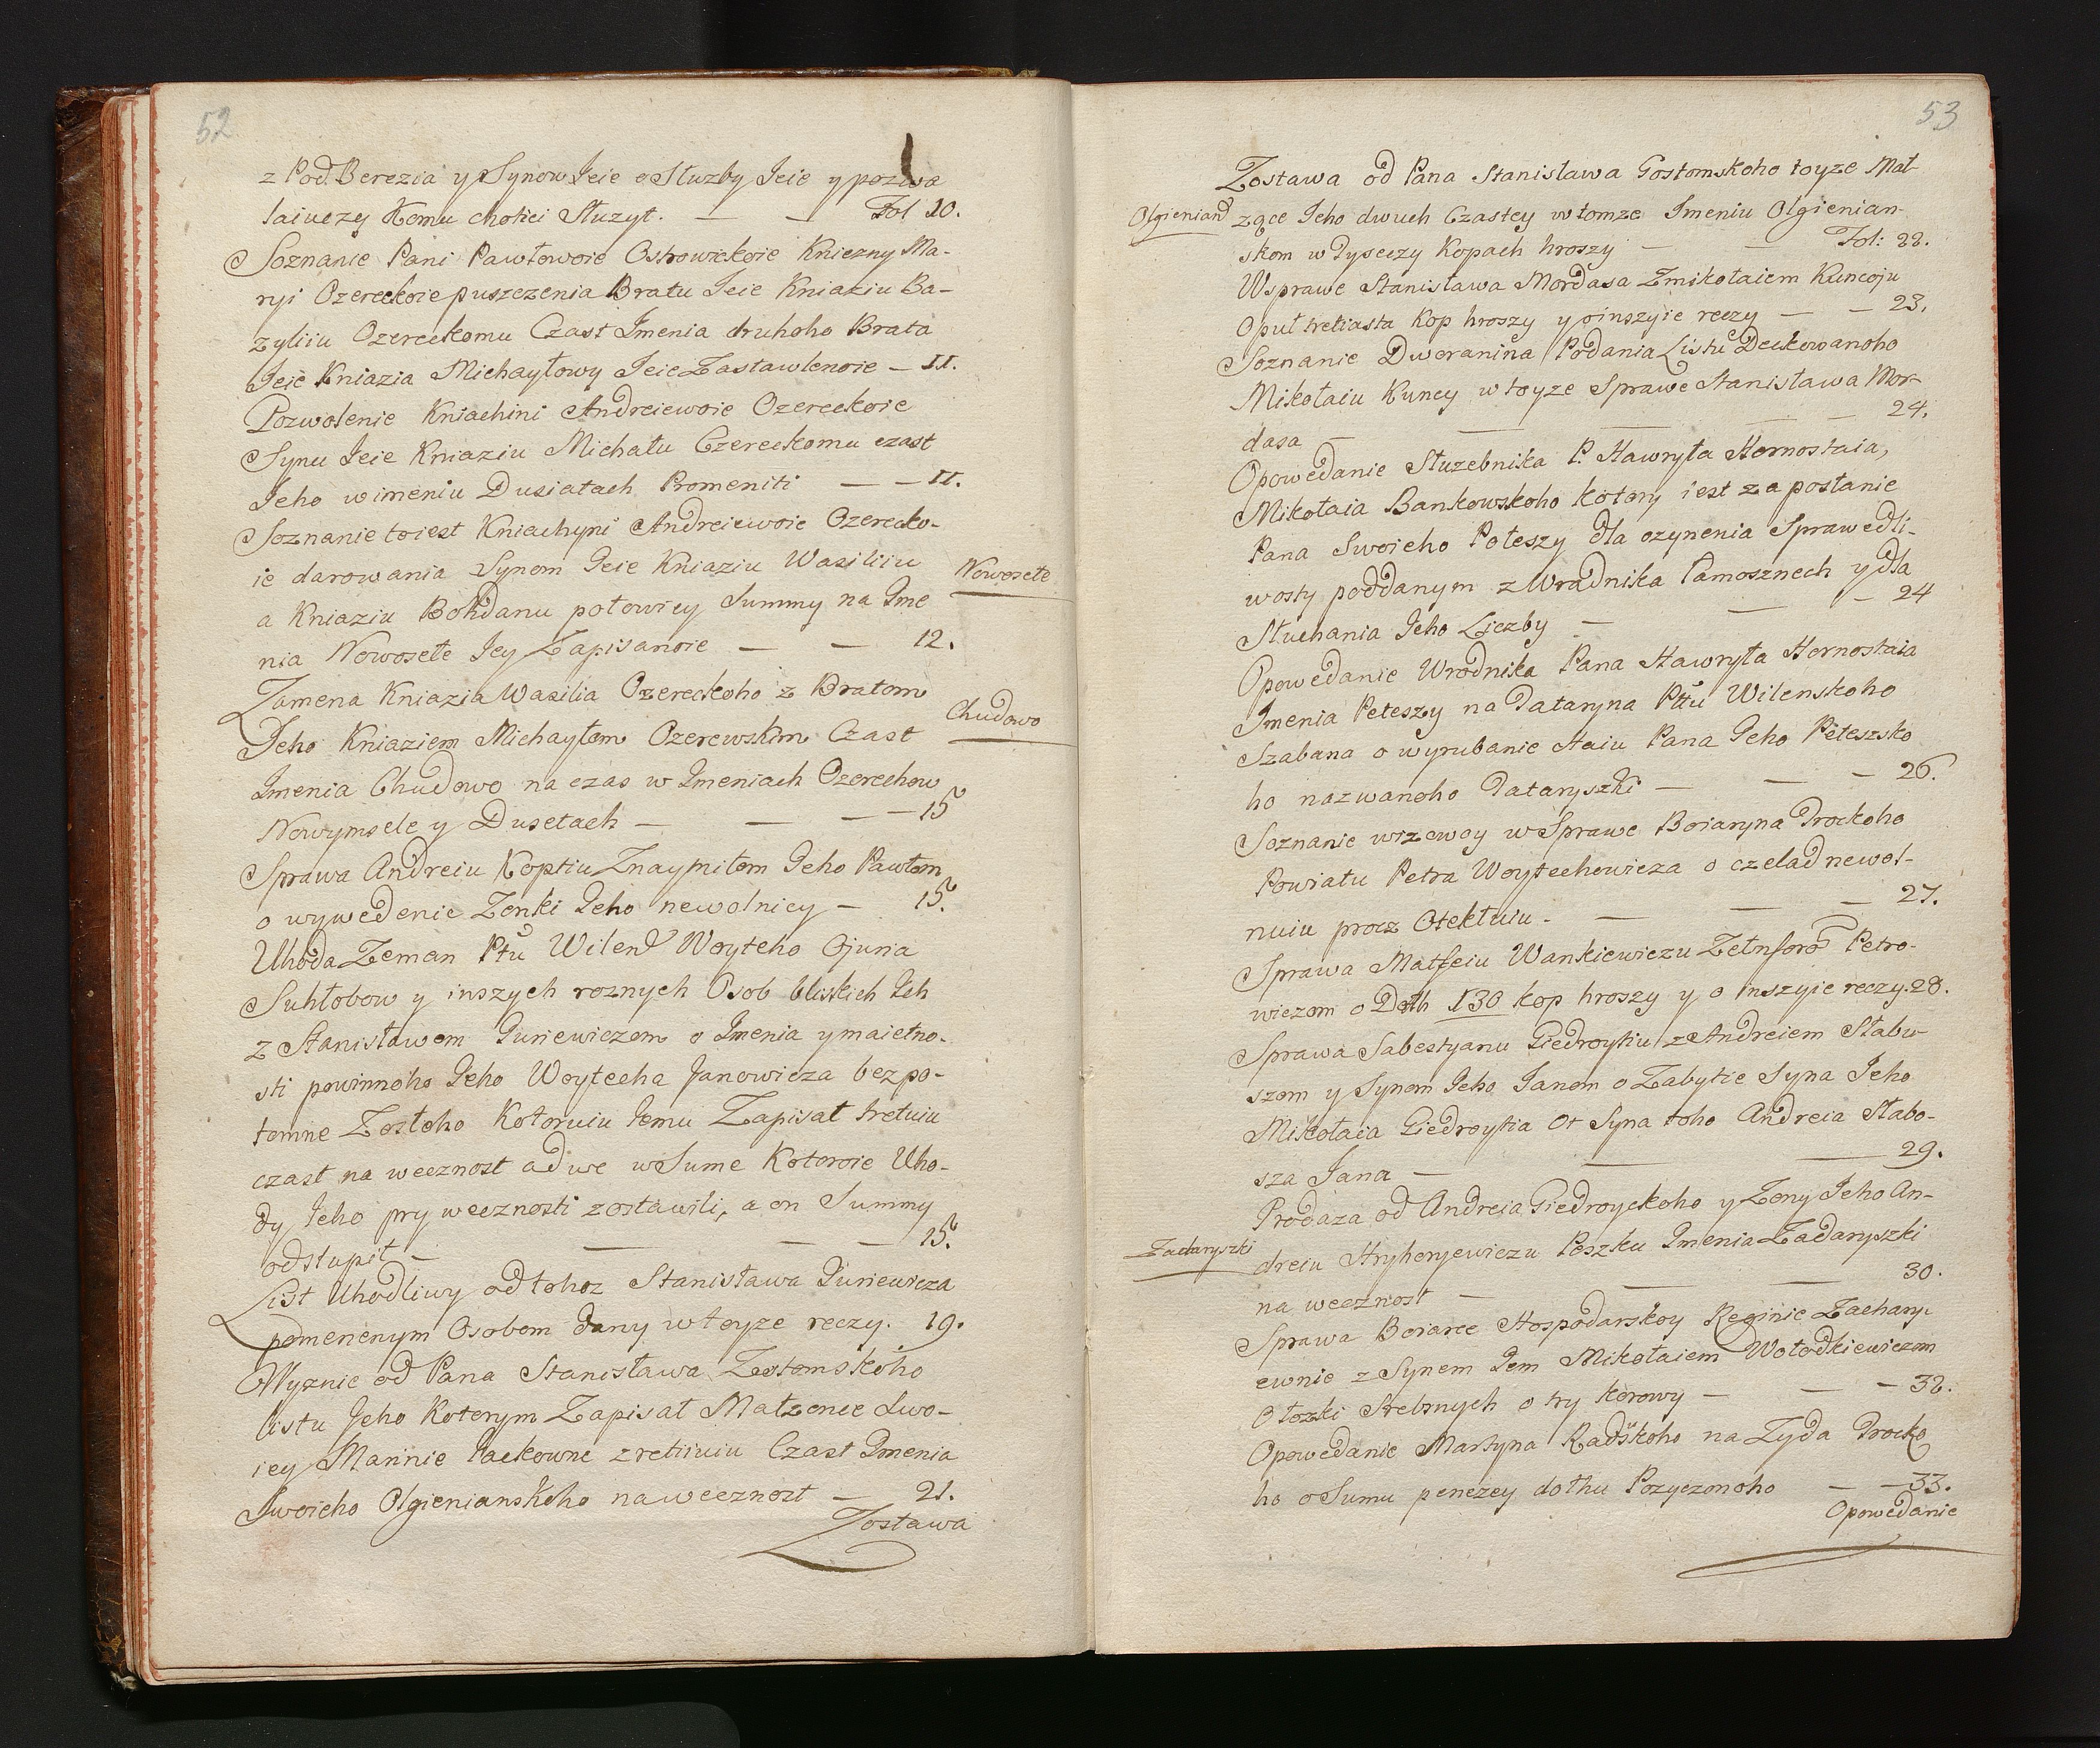 52
z Pod Berezia y Synow Jeie o Służby Jeie y pozwa
laiuczy Komu chotiei Służyt. — — Fol 10.
Soznanie Pani Pawłowoie Ostrowickoie Kniezny Ma-
ryi Ozereckoie puszczenia Bratu Jeie Kniaziu Ba-
zyliiu Ozereckomu Czast Imenia druhoho Brata
Jeie Kniazia Michayłowy Jeie Zastawlenoie — 11.
Pozwolenie Kniachini Andreiewoie Ozereckoie
Synu Jeie Kniaziu Michału Ozereckomu czast
Jeho w imeniu Dusiatach Promeniti — — 11.
Soznanie toiest Kniachyni Andreiewoie Ozerecko-
ie darowania Synom Jeie Kniaziu Wasiliiu
Nowosełe
a Kniaziu Bohdanu połowicy Summy na Ime
nia Nowosełe Jey Zapisanoie — — 12.
Zamena Kniazia Wasilia Ozereckoho z Bratom
Chudowo
Jeho Kniaziem Michayłem Ozerewskim Czast
Imenia Chudowo na czas w Imeniach Ozerechow
Nowymsele y Dusetach — — — 15
Sprawa Andreiu Koptiu Znaymitom Jeho Pawłom
o wywedenie Zonki Jeho newolnicy — 15.
Uhoda Zeman Ptu Wilen Woyteho Ojuna
Suhłobow y inszych roznych Osob bliskich Jeh
z Stanisławom Juriewiczom o Imenia y maietno-
sti powinnoho Jeho Woytecha Janowicza bezpo-
tomne Zosłoho Kotoruiu Jemu Zapisał tretuiu
czast na wecznost a dwe w Sume Kotoroie Uho-
dy Jeho pry wecznosti zostawili, a on Summy
odstupił — — — — 15.
List Uhodliwy od tohoz Stanisława Juriewicza
pomenenym Osobom dany w toyze reczy. 19.
Wyznie od Pana Stanisława Zostomskoho
listu Jeho Kotorym Zapisał Małzonce Swo-
iey Marinie Packowne z retiiuiu Czast Imenia
Swoieho Olgienianskoho na wecznost — 21.
Zostawa
53
Zostawa od Pana Stanisława Gostomskoho toyze Mał-
Olgienian
zące Jeho dwuch Czastey w tomze Imeniu Olgienian-
skom w Tyseczy Kopach hroszy — — Fol: 22.
W sprawe Stanisława Mordasa Zmikołaiem Kuncoju
O puł tretiasta Kop hroszy y o inszyie reczy — — 23.
Soznanie Dworanina Podania Listu Deckowanoho
Mikołaiu Kuncy w toyze Sprawe Stanisława Mor-
dasa — — — — 24.
Opowedanie Służebnika P. Hawryła Hornostaia,
Mikołaia Bankowskoho kotory iest za posłanie
Pana Swoieho Poteszy dla czynenia Sprawedli-
wosty poddanym z Wradnika Pamosznech y dla
Słuchania Jeho Liczby — — — 24
Opowedanie Wrodnika Pana Hawryła Hornostaia
Imenia Peteszy na Tataryna Pttu Wilenskoho
Szabana o wyrubanie Haiu Pana Jeho Peteszsko
ho nazwanoho Tataryszki — — — 26.
Soznanie wizowoy w Sprawe Boiaryna Trockoho
Powiatu Petra Woytechowicza o czelad newol-
nuiu procz Otektuiu — — — — 27.
Sprawa Matfeiu Wankiewiczu Petro-
wiczom o Dołh 130 kop hroszy y o inszyie reczy. 28.
Sprawa Sabestyanu Giedroytiu z Andreiem Stabu-
szom y Synom Jeho Janom o Zabytie Syna Jeho
Mikołaia Giedroytia Ot Syna toho Andreia Stabo-
sza Jana — — — 29.
Prodaza od Andreia Giedroyckoho y Zony Jeho An-
Zadaryszki
dreiu Hryhoryewiczu Poszku Imenia Zadaryszki
na wecznost — — — 30.
Sprawa Boiarce Hospodarskoy Reginie Zachary-
ewnie z Synem Jem Mikołaiem Wołodkiewiczom
O łozki Srebrnych o try korowy — — — 32.
Opowedanie Martyna Radskoho na Zyda Trocko
ho o Sumu penezey dołhu Pozyczonoho — — 33.
Opowedanie